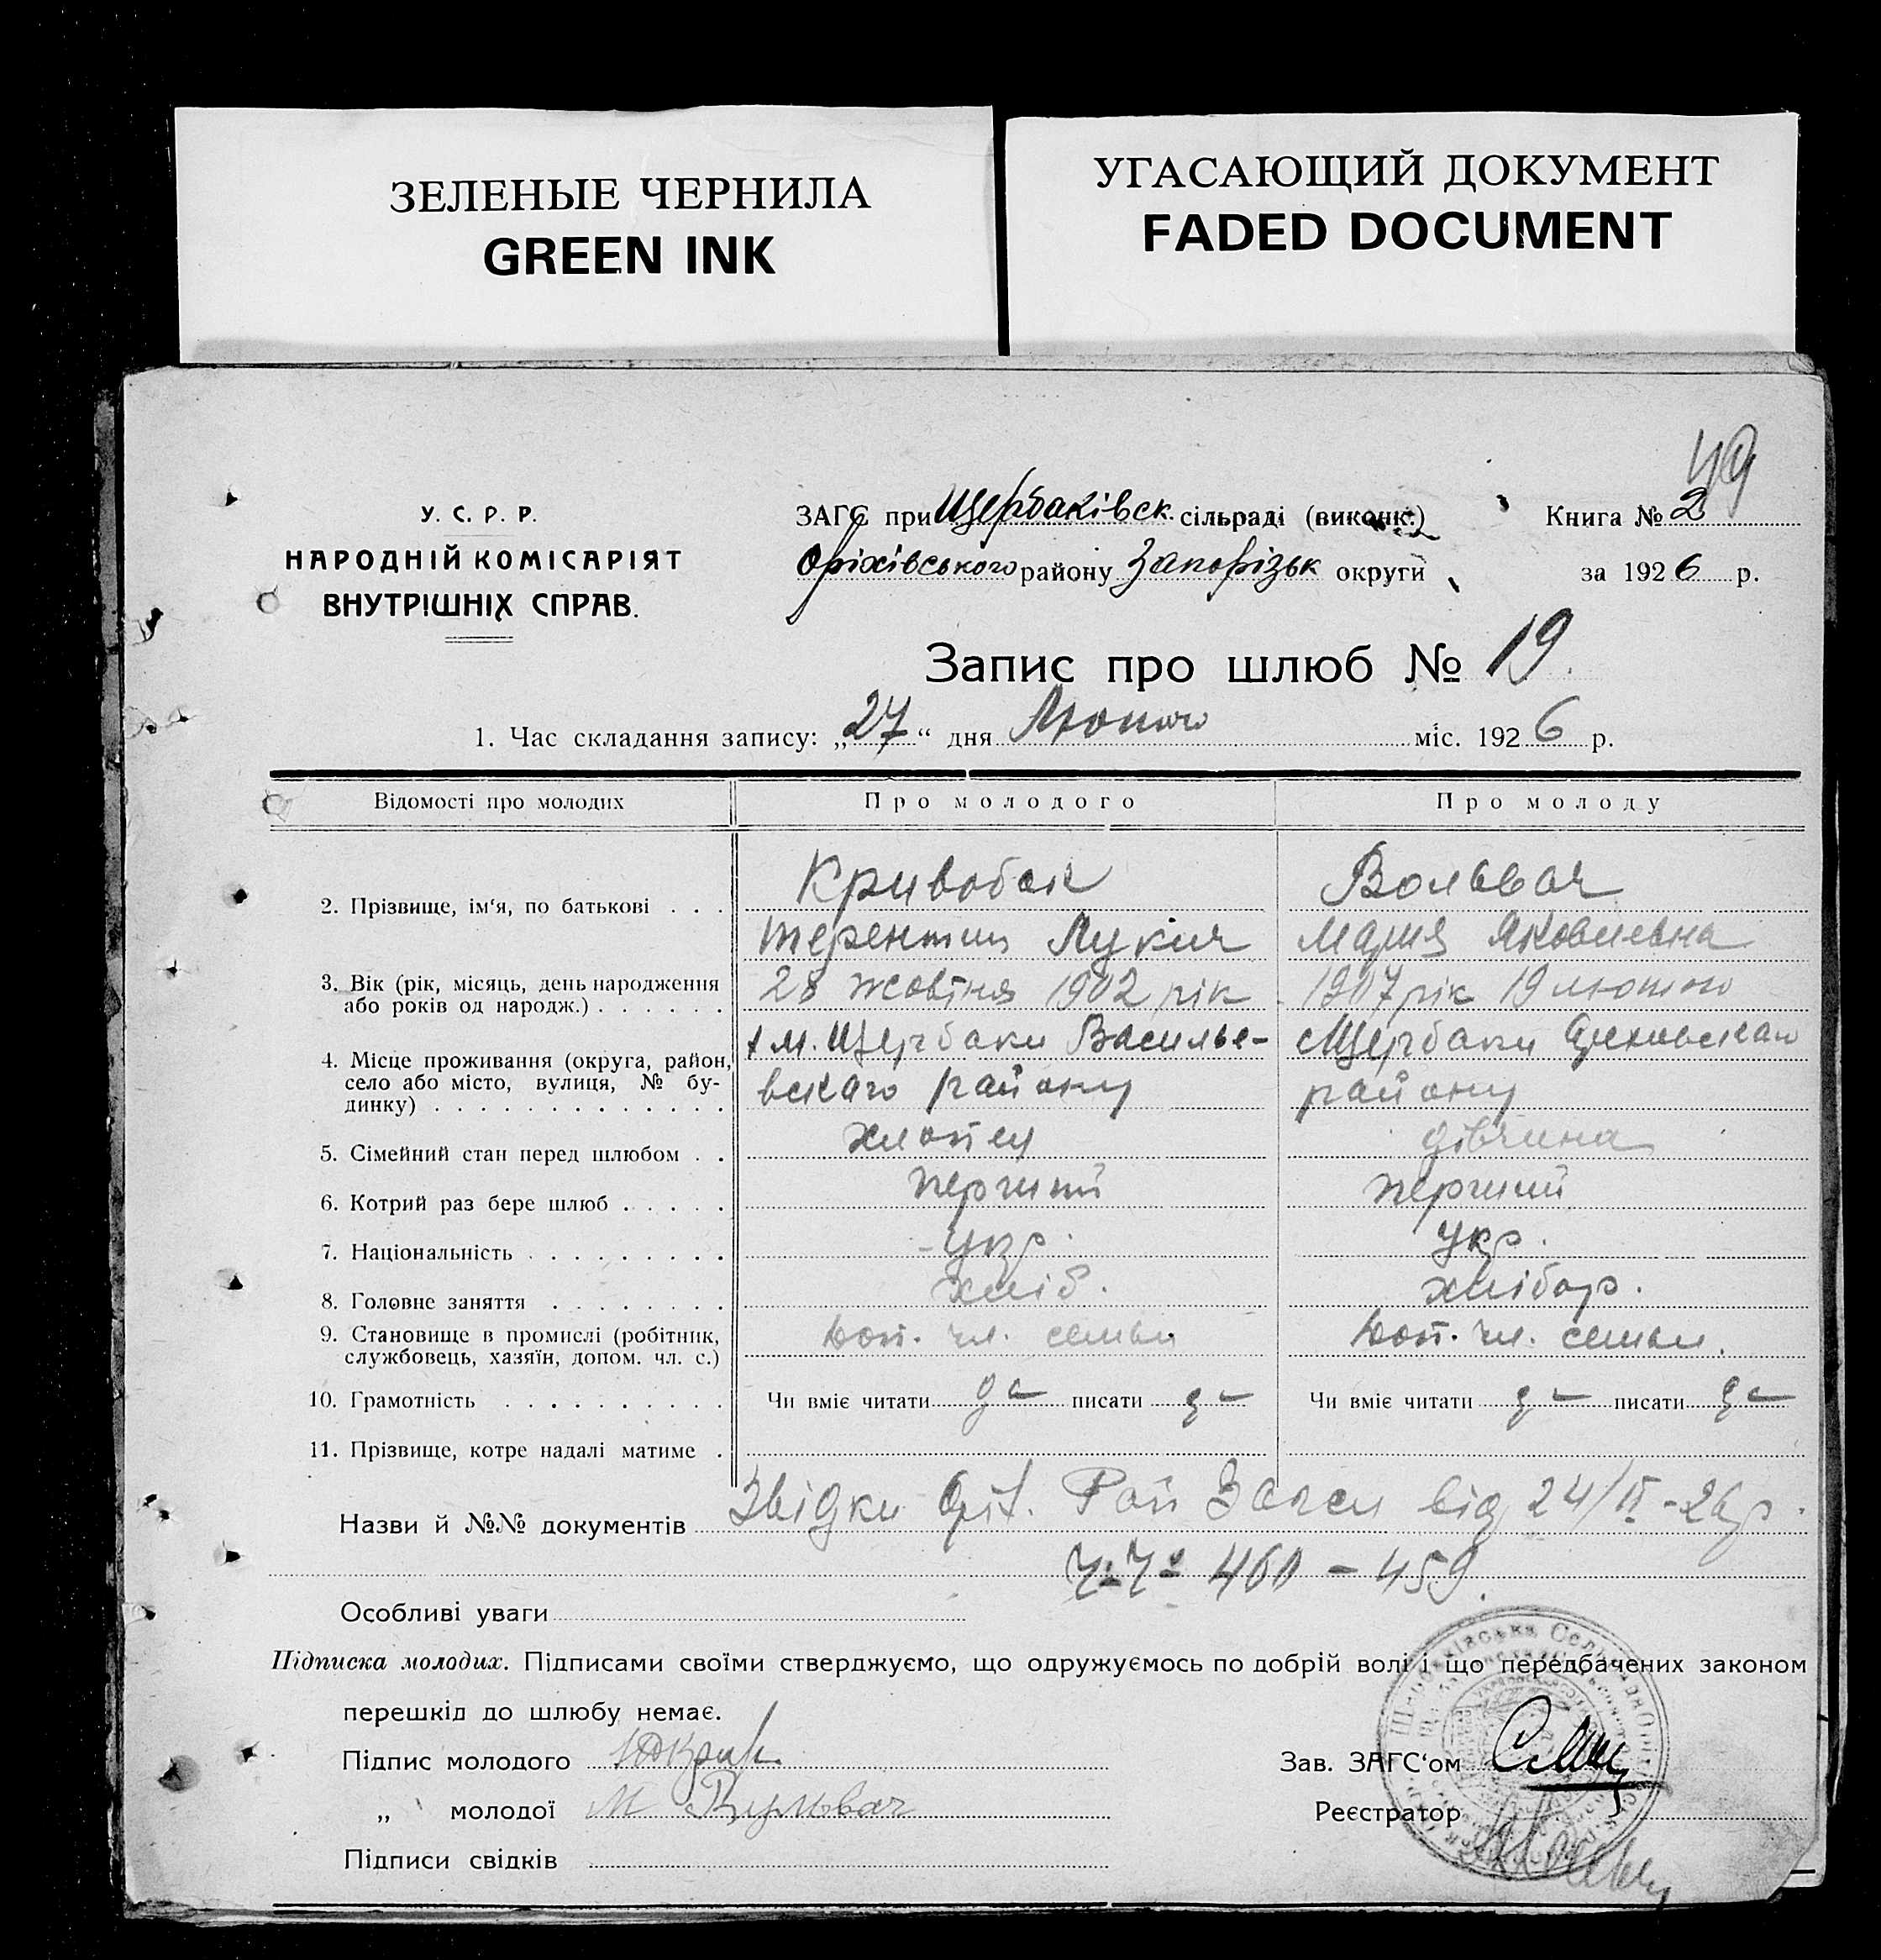 ЗЕЛЕНЫЕ ЧЕРНИЛА
GREEN INK
УГАСАЮЩИЙ ДОКУМЕНТ
FADED DOCUMENT
49
У. С. Р. Р.
НАРОДНІЙ КОМІСАРІЯТ
ВНУТРІШНІХ СПРАВ.
ЗАГС при Щербаківск. сільраді (виконк.)
Оріхівського району Запорізьк округи
Книга № 2
за 1926 р.
Запис про шлюб № 19.
1. Час складання запису: „27“ дня Лютого міс. 1926 р.
Відомості про молодих Про молодого Про молоду
2. Прізвище, ім'я, по батькові . . . Кривобок Вольвач
Терентий Лукич Мария Яковлевна
3. Вік (рік, місяць, день народження 28 жовтня 1902 рік 1907 рік 19 лютого
або років од народж.) . . . . . .
4. Місце проживання (округа, район, Щербаки Василье- Щербаки Ореховскаго
село або місто, вулиця, № бу- вскаго району району
динку) . . . . . . . . . . . . .
5. Сімейний стан перед шлюбом . . хлопец дівчина
6. Котрий раз бере шлюб . . . . . перший перший
7. Національність . . . . . . . . . укр. укр.
8. Головне заняття . . . . . . . . хліб. хлібор.
9. Становище в промислі (робітник, доп. чл. семьи доп. чл. семьи.
службовець, хазяїн, допом. чл. с.)
10. Грамотність . . . . . . . . . . Чи вміє читати да писати да Чи вміє читати да писати да
11. Прізвище, котре надалі матиме .
Назви й №№ документів Звідки Оріх. Рай Загса від 24/II-26 р.
460 - 459.
Особливі уваги
Підписка молодих. Підписами своїми стверджуємо, що одружуємось по добрій волі і що передбачених законом
перешкід до шлюбу немає.
Підпис молодого
„ молодої М Вульвач
Підписи свідків
Зав. ЗАГС'ом
Реєстратор